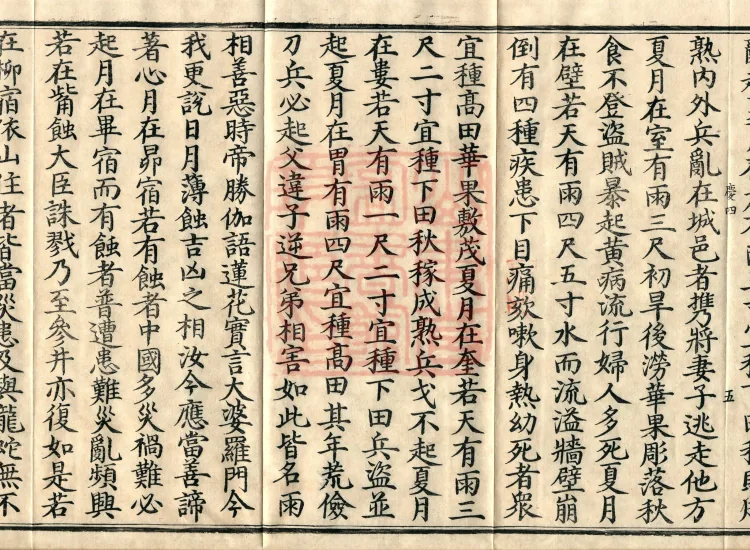 慶四 五
熟内外兵亂在城邑者攜將妻子逃走他方
夏月在室有雨三尺初旱後澇華果彫落秋
食不登盜賊暴起黃病流行婦人多死夏月
在壁若天有雨四尺五寸水而流溢牆壁崩
倒有四種疾患下目痛欬嗽身熱幼死者衆
宜種髙田華果敷茂夏月在奎若天有雨三
尺二寸宜種下田秋稼成熟兵戈不起夏月
在婁若天有雨一尺二寸宜種下田兵盜並
起夏月在胃有雨四尺宜種髙田其年荒儉
刀兵必起父違子逆兄弟相害如此皆名雨
相善惡時帝勝伽語蓮花實言大婆羅門今
我更說日月薄蝕吉凶之相汝今應當善諦
著心月在昴宿若有蝕者中國多災禍難必
起月在畢宿而有蝕者普遭患難災亂頻興
若在觜蝕大臣誅戮乃至參井亦復如是若
在柳宿依山住者皆當災患及與龍蛇無不